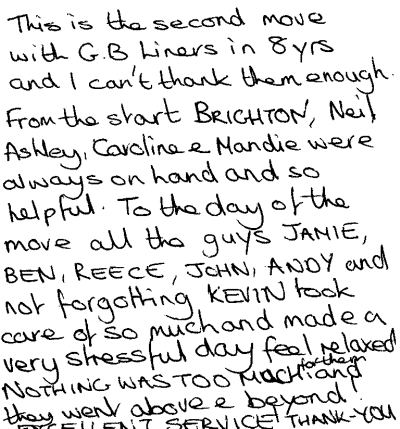 This is the second move
with G.B Liners in 8 yrs
and I can't thank them enough.
From the start BRICHTON, Neil,
Ashley, Caroline e Mandie were
always on hand and so
helpful. To the day of the
move all the guys JAMIE,
BEN, REECE, JOHN, ANDY and
not forgotting KEVIN took
care of so much and made a
very stressful day feel relaxed
NOTHING WAS TOO MUCH for them and
they went above e beyond!
EXCELLENT SERVICE THANK-YOU